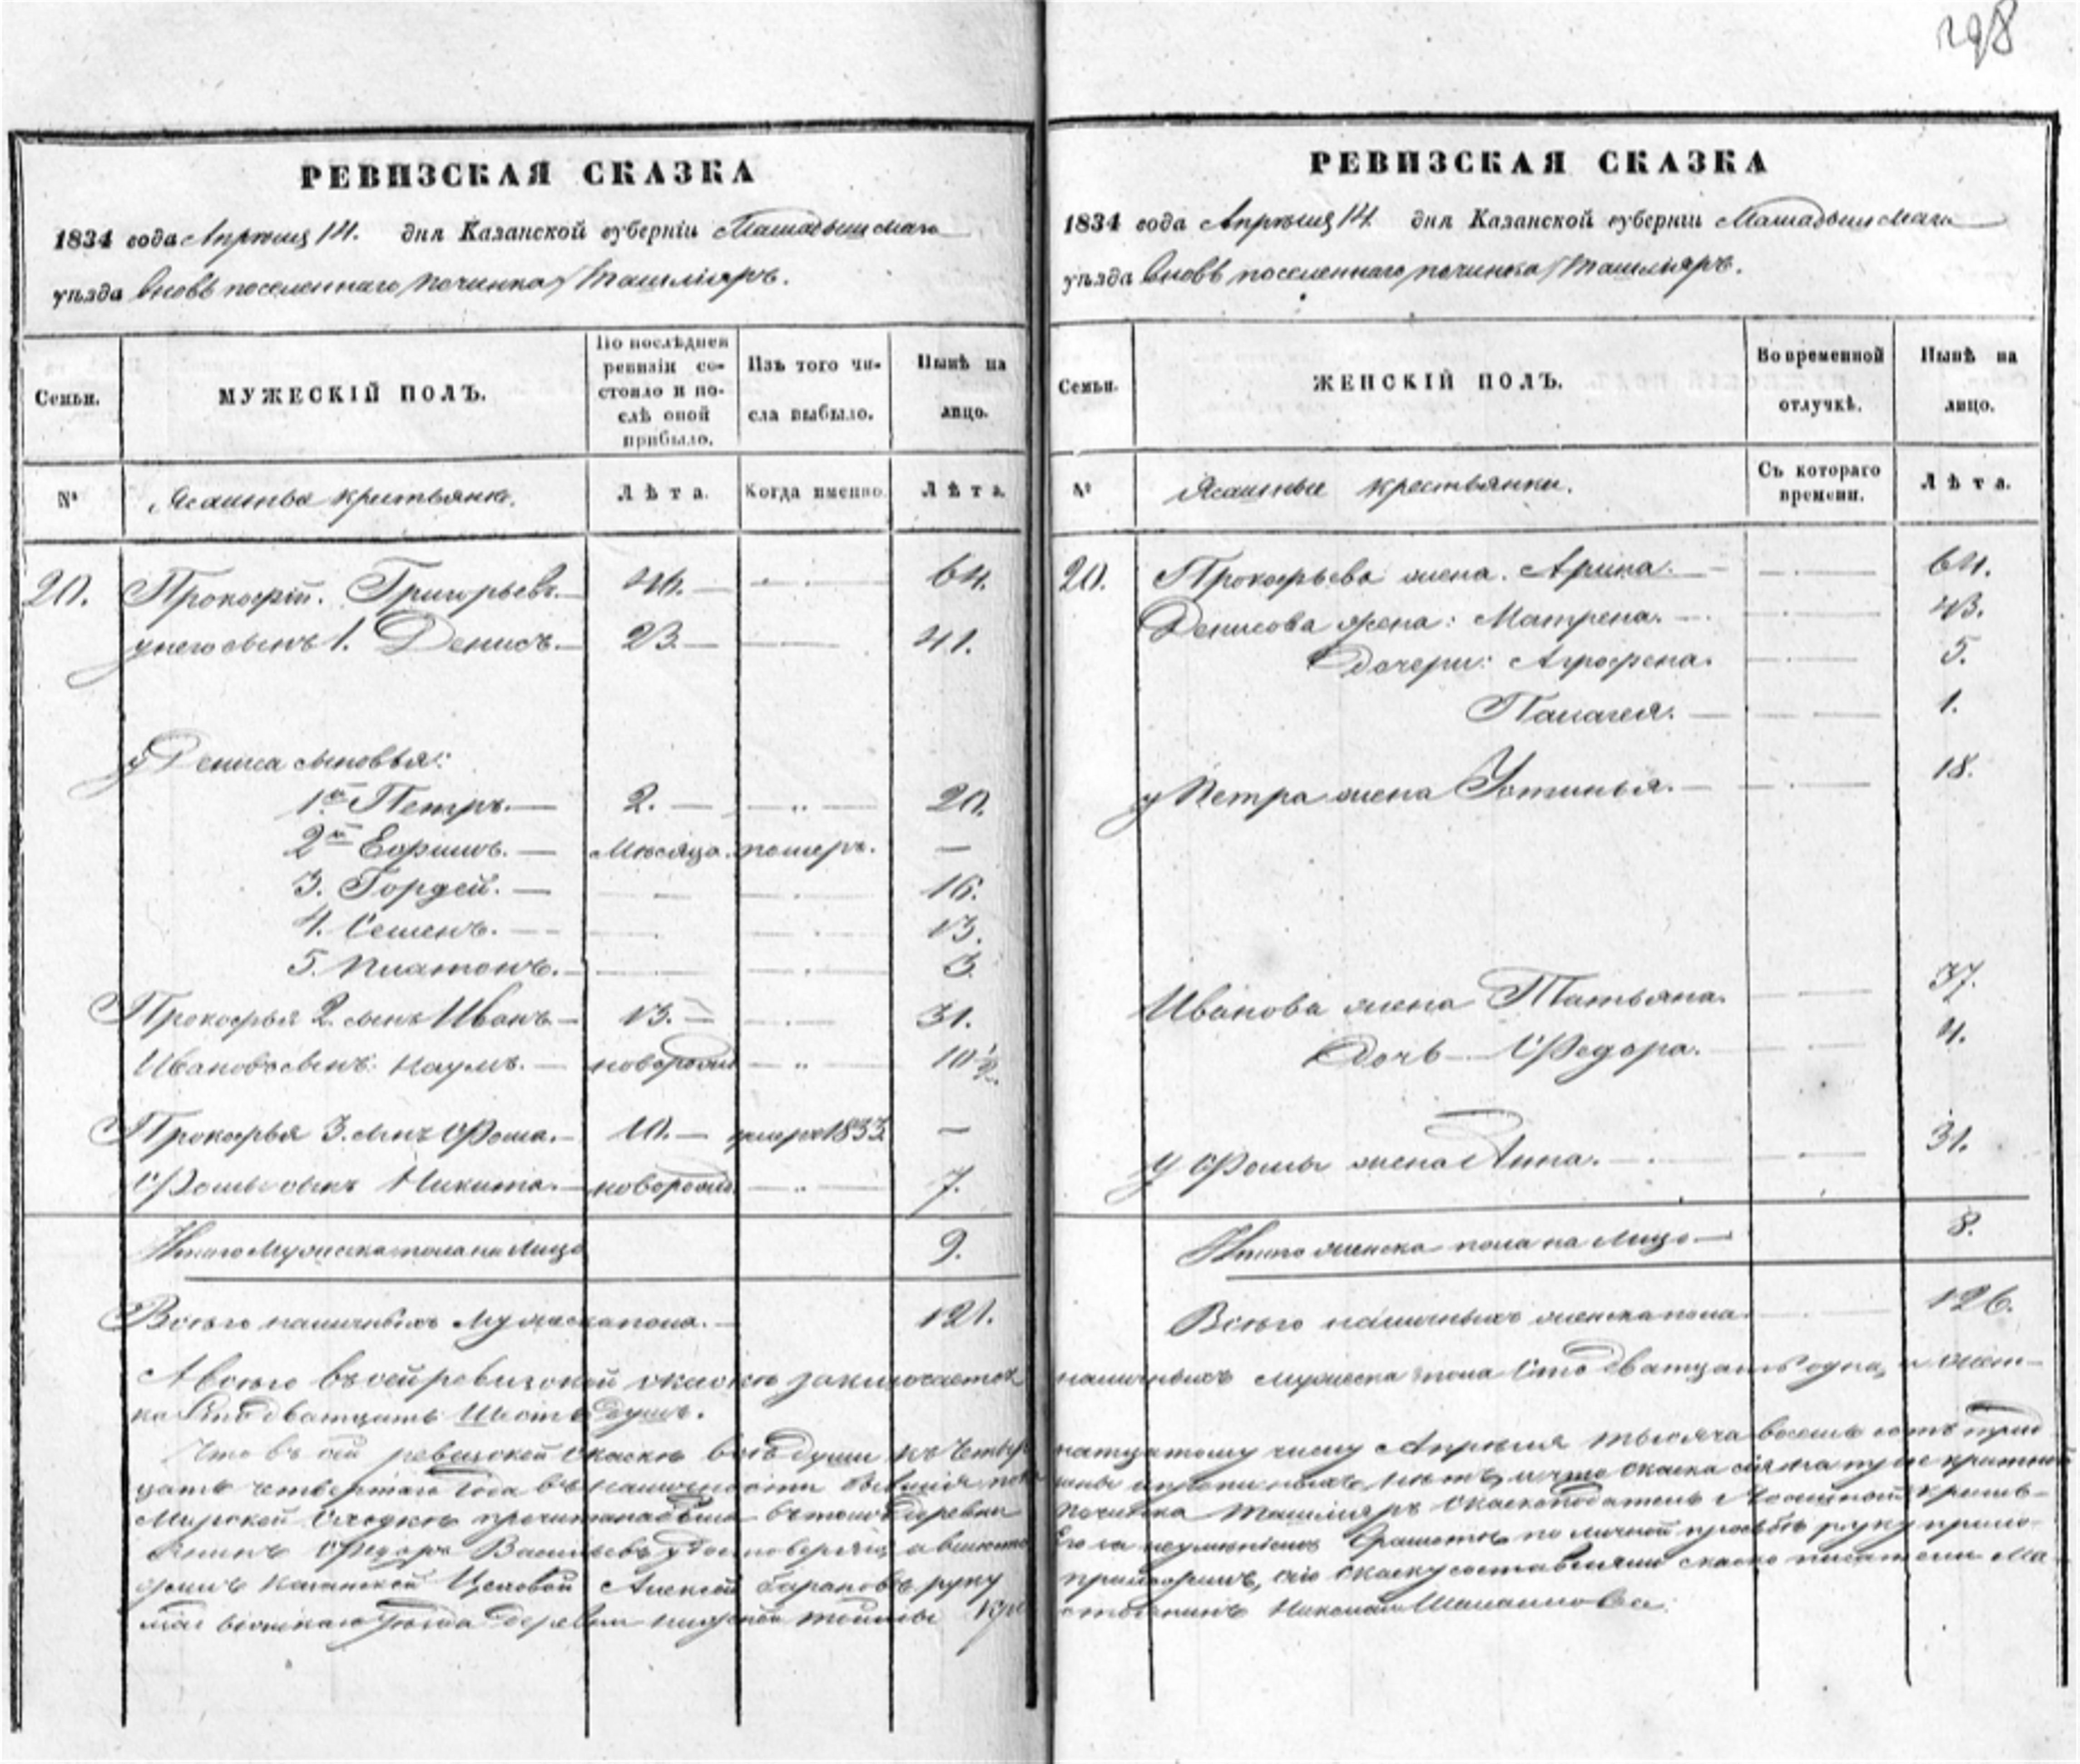 298
РЕВИЗСКАЯ СКАЗКА
1834 года Апрѣля 14. дня Казанской губерніи Мамадышскаго
уѣзда вновь поселеннаго починка Ташлияръ.
Семьи.
МУЖЕСКІЙ ПОЛЪ.
По послѣдней ревизіи состояло и послѣ оной прибыло.
Изъ того числа выбыло.
Нынѣ на лицо.
№
Ясашные крестьяне.
Лѣта.
Когда именно.
Лѣта.
20. Прокофій Григорьевъ. 46. 64.
у него сынъ 1. Денисъ. 23. 41.
у Дениса сыновья:
1й Петръ. 2. 20.
2й Ефимъ. Мѣсяца. померъ.
3. Гордей. 16.
4. Семенъ. 13.
5. Платонъ. 3
Прокофья 2. сынъ Иванъ 13. 31.
Ивановъ сынъ: Наумъ. новорожд 10½
Прокофья 3. сынъ Фома. 10. помре 1833
Фомы сынъ Никита. новорожд. 7.
Итого Мужеска пола на Лицо 9.
Всего наличныхъ Мужеска пола. 121.
РЕВИЗСКАЯ СКАЗКА
1834 года Апрѣля 14. дня Казанской губерніи Мамадышскаго
уѣзда вновь поселеннаго починка Ташлияръ.
Семьи.
ЖЕНСКІЙ ПОЛЪ.
Во временной отлучкѣ.
Нынѣ на лицо.
№
Ясашные крестьянки.
Съ котораго времени.
Лѣта.
20. Прокофьева жена. Арина. 64.
Денисова жена: Матрена. 43.
Дочери: Агрофена. 5.
Палагея. 1.
у Петра жена Устинья. 18.
Иванова жена Татьяна. 37.
Дочь Федора. 4.
у Фомы жена Анна. 31.
Итого женска пола на Лицо 8.
Всего наличныхъ женска пола 126.
А всего въ сей ревизской скаске заключается наличныхъ мужеска пола Сто дватцать одна, и жен-
ка Сто дватцать Шесть душъ.
Что въ сей ревизской Скаске все души къ Четырнатцатому числу Апрѣля тысяча восемь сотъ трид
цать четвертаго года въ наличности
Мирской Сходке прочитана въ томъ Деревни починка Ташлияръ Скаскоподатель Ясашной кресть-
янинъ Федоръ Васильевъ Грамоте по личной прозьбе руку прило-
жилъ Алексей Барановъ руку приложилъ, сію скаску составлялъ
уезда деревни крестьянинъ Николай